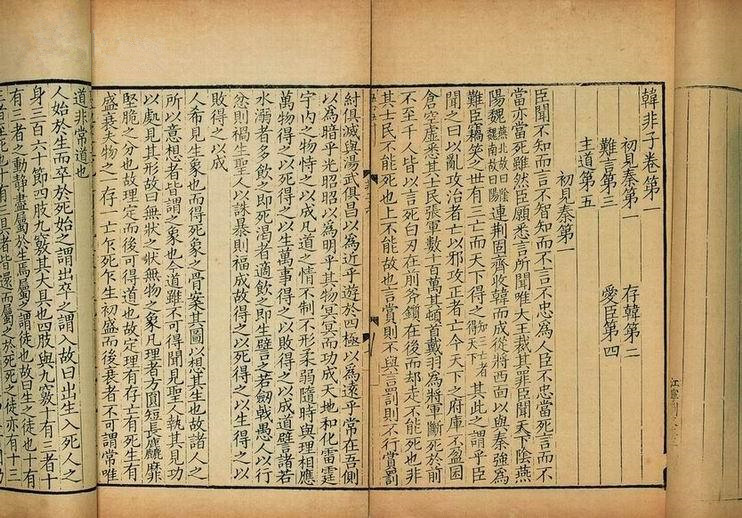 韓非子卷第一
初見秦第一 存韓第二
難言第三 愛臣第四
主道第五
初見秦第一
臣聞不知而言不智知而不言不忠為人臣不忠當死言而不
當亦當死雖然臣願悉言所聞唯大王裁其罪臣聞天下陰燕
陽魏燕北故曰陰魏南故曰陽連荆固齊收韓而成從將西面以與秦強為
難臣竊笑之世有三亡而天下得之知三亡者得天下其此之謂乎臣
聞之曰以亂攻治者亡以邪攻正者亡今天下之府庫不盈囷
倉空虛悉其士民張軍數十百萬其頓首戴羽為將軍斷死於前
不至千人皆以言死白刃在前斧鑕在後而却走不能死也非
其士民不能死也上不能故也言賞則不與言罰則不行賞罰
紂俱滅與湯武俱昌以為近乎遊於四極以為遠乎常在吾側
以為暗乎光昭昭以為明乎其物冥冥而功成天地和化雷霆
宇内之物恃之以成凡道之情不制不形柔弱隨時與理相應
萬物得之以死得之以生萬事得之以敗得之以成道譬諸若
水溺者多飲之即死渴者適飲之即生譬之若劒戟愚人以行
忿則禍生聖人以誅暴則福成故得之以死得之以生得之以
敗得之以成
人希見生象也而得死象之骨案其圖以想其生也故諸人之
所以意想者皆謂之象也今道雖不可得聞見聖人執其見功
以處見其形故曰無狀之狀無物之象凡理者方圓短長麤靡
堅脆之分也故理定而後可得道也故定理有存亡有死生有
盛衰夫物之一存一亡乍死乍生初盛而後衰者不可謂常唯
道非常道也
人始於生而卒於死始之謂出卒之謂入故曰出生入死人之
身三百六十節四肢九竅其大具也四肢與九竅十有三者十
有三者之動靜盡屬於生焉屬之謂徒也故曰生之徒也十有
三者至死也十有三具者皆還而屬之於死死之徒亦有十三